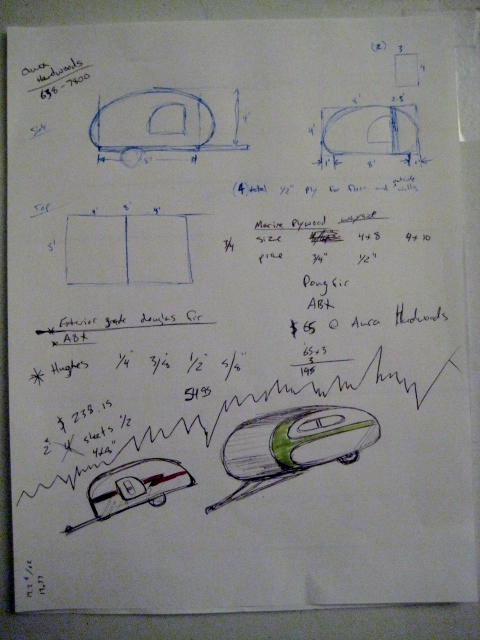 Aura
Hardwoods
638-7800
(2) 3
4
Side
4'
8'
8' 2.5'
4'
1' 8' 1'
(4) total 1/2" ply for floor and outside walls
Top
4' 8' 4'
5'
Marine Plywood
3/4 size 4x8 4x10
3/4" 1/2"
Doug fir
ABX
$65 @ Aura Hardwoods
65x3
3
195
* Exterior grade douglas fir
* ABX
* Hughes 1/4" 3/8 1/2" 5/8"
5495
$238.15
2 4 sheets 1/2
4x8"